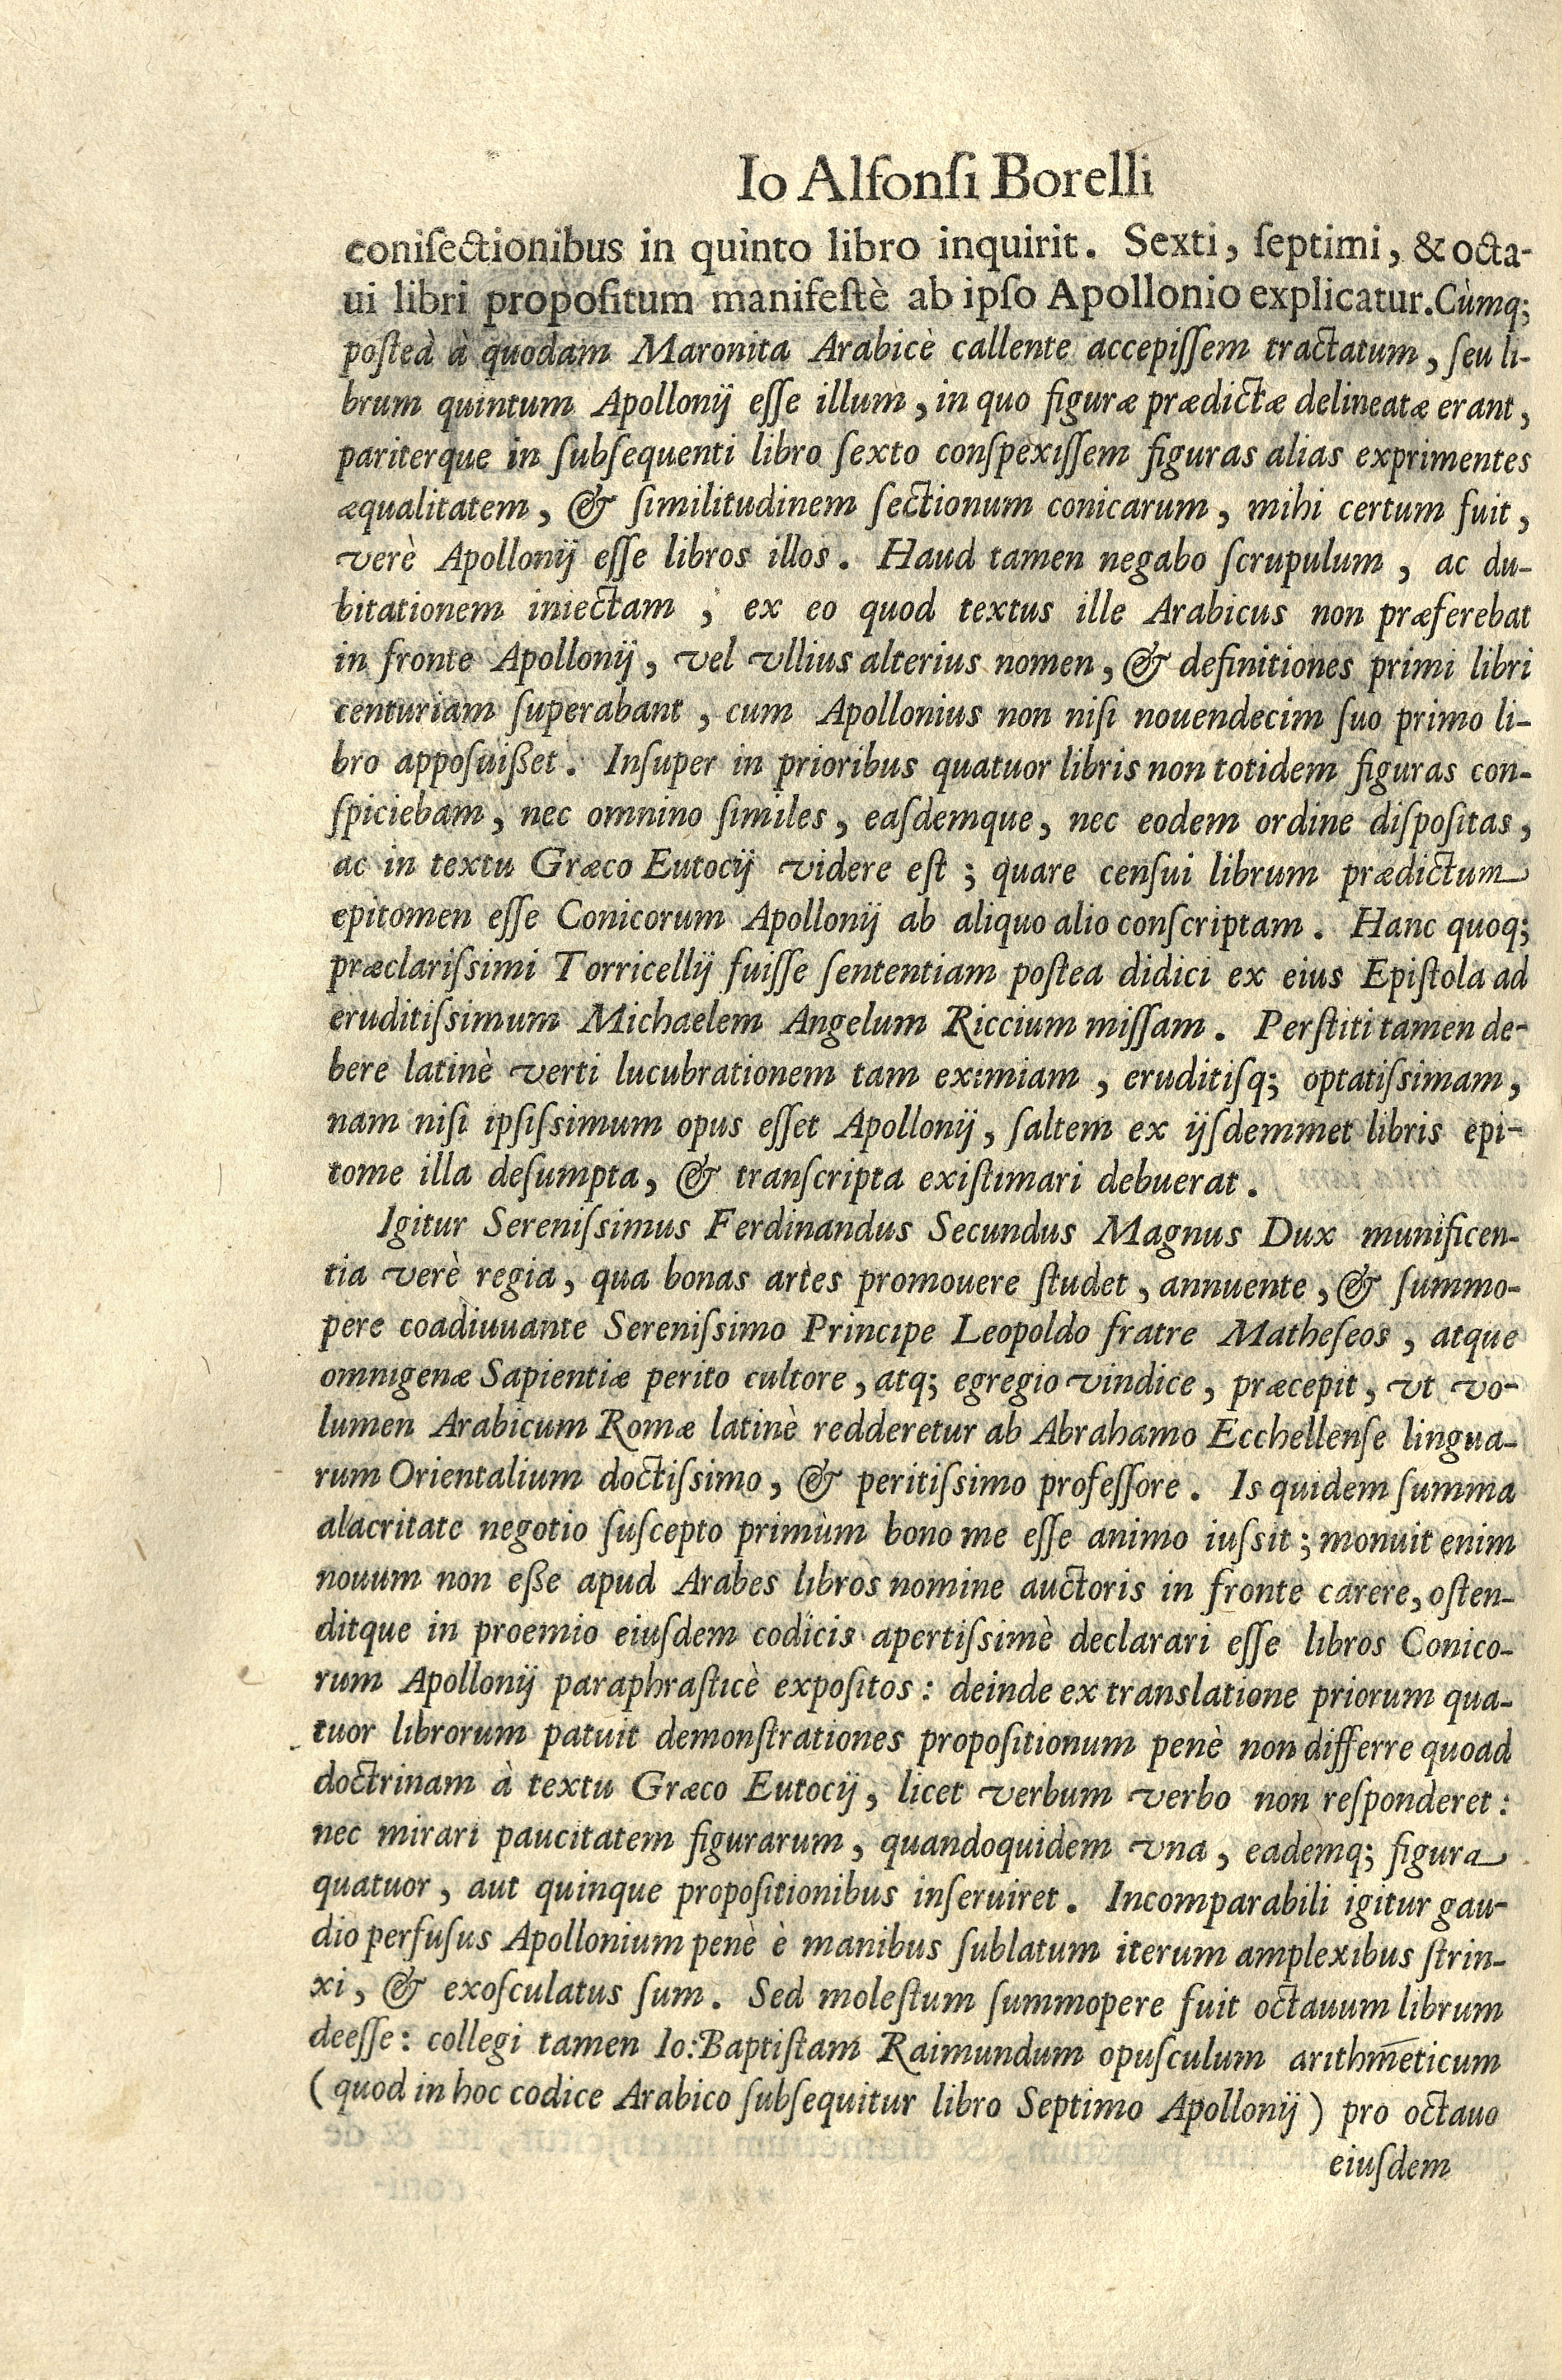 Io Alfonſi Borelli
coniſectionibus in quinto libro inquirit. Sexti, ſeptimi, & octa-
ui libri propoſitum manifeſtè ab ipſo Apollonio explicatur. Cùmq;
poſteà à quodam Maronita Arabicè callente accepiſſem tractatum, ſeu li-
brum quintum Apollonij eſſe illum, in quo figuræ prædictæ delineatæ erant,
pariterque in ſubſequenti libro ſexto conſpexiſſem figuras alias exprimentes
æqualitatem, & ſimilitudinem ſectionum conicarum, mihi certum fuit,
verè Apollonij eſſe libros illos. Haud tamen negabo ſcrupulum, ac du-
bitationem iniectam, ex eo quod textus ille Arabicus non præferebat
in fronte Apollonij, vel vllius alterius nomen, & definitiones primi libri
centuriam ſuperabant, cum Apollonius non niſi nouendecim ſuo primo li-
bro appoſuißet. Inſuper in prioribus quatuor libris non totidem figuras con-
ſpiciebam, nec omnino ſimiles, eaſdemque, nec eodem ordine diſpoſitas,
ac in textu Græco Eutocij videre eſt; quare cenſui librum prædictum
epitomen eſſe Conicorum Apollonij ab aliquo alio conſcriptam. Hanc quoq;
præclariſsimi Torricellij fuiſſe ſententiam poſtea didici ex eius Epiſtola ad
eruditiſsimum Michaelem Angelum Riccium miſſam. Perſtiti tamen de-
bere latinè verti lucubrationem tam eximiam, eruditiſq; optatiſsimam,
nam niſi ipſiſsimum opus eſſet Apollonij, ſaltem ex ijſdemmet libris epi-
tome illa deſumpta, & tranſcripta exiſtimari debuerat.
Igitur Sereniſsimus Ferdinandus Secundus Magnus Dux munificen-
tia verè regia, qua bonas artes promouere ſtudet, annuente, & ſummo-
pere coadiuuante Sereniſsimo Principe Leopoldo fratre Matheſeos, atque
omnigenæ Sapientiæ perito cultore, atq; egregio vindice, præcepit, vt vo-
lumen Arabicum Romæ latinè redderetur ab Abrahamo Ecchellenſe lingua-
rum Orientalium doctiſsimo, & peritiſsimo profeſſore. Is quidem ſumma
alacritate negotio ſuſcepto primùm bono me eſſe animo iuſsit; monuit enim
nouum non eße apud Arabes libros nomine auctoris in fronte carere, oſten-
ditque in proemio eiuſdem codicis apertiſsimè declarari eſſe libros Conico-
rum Apollonij paraphraſticè expoſitos: deinde ex translatione priorum qua-
tuor librorum patuit demonſtrationes propoſitionum penè non differre quoad
doctrinam à textu Græco Eutocij, licet verbum verbo non reſponderet:
nec mirari paucitatem figurarum, quandoquidem vna, eademq; figura
quatuor, aut quinque propoſitionibus inſeruiret. Incomparabili igitur gau-
dio perfuſus Apollonium penè è manibus ſublatum iterum amplexibus ſtrin-
xi, & exoſculatus ſum. Sed moleſtum ſummopere fuit octauum librum
deeſſe: collegi tamen Io: Baptiſtam Raimundum opuſculum arithm̄eticum
(quod in hoc codice Arabico ſubſequitur libro Septimo Apollonij) pro octauo
eiuſdem